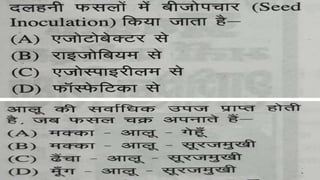 दलहनी फसलों में बीजोपचार (Seed
Inoculation) किया जाता है—
(A) एजोटोबेक्टर से
(B) राइजोबियम से
(C) एजोस्पाइरीलम से
(D) फॉस्फेटिका से
आलू की सर्वाधिक उपज प्राप्त होती
है, जब फसल चक्र अपनाते हैं—
(A) मक्का - आलू - गेहूँ
(B) मक्का - आलू - सूरजमुखी
(C) ढैंचा - आलू - सूरजमुखी
(D) मूँग - आलू - सूरजमुखी